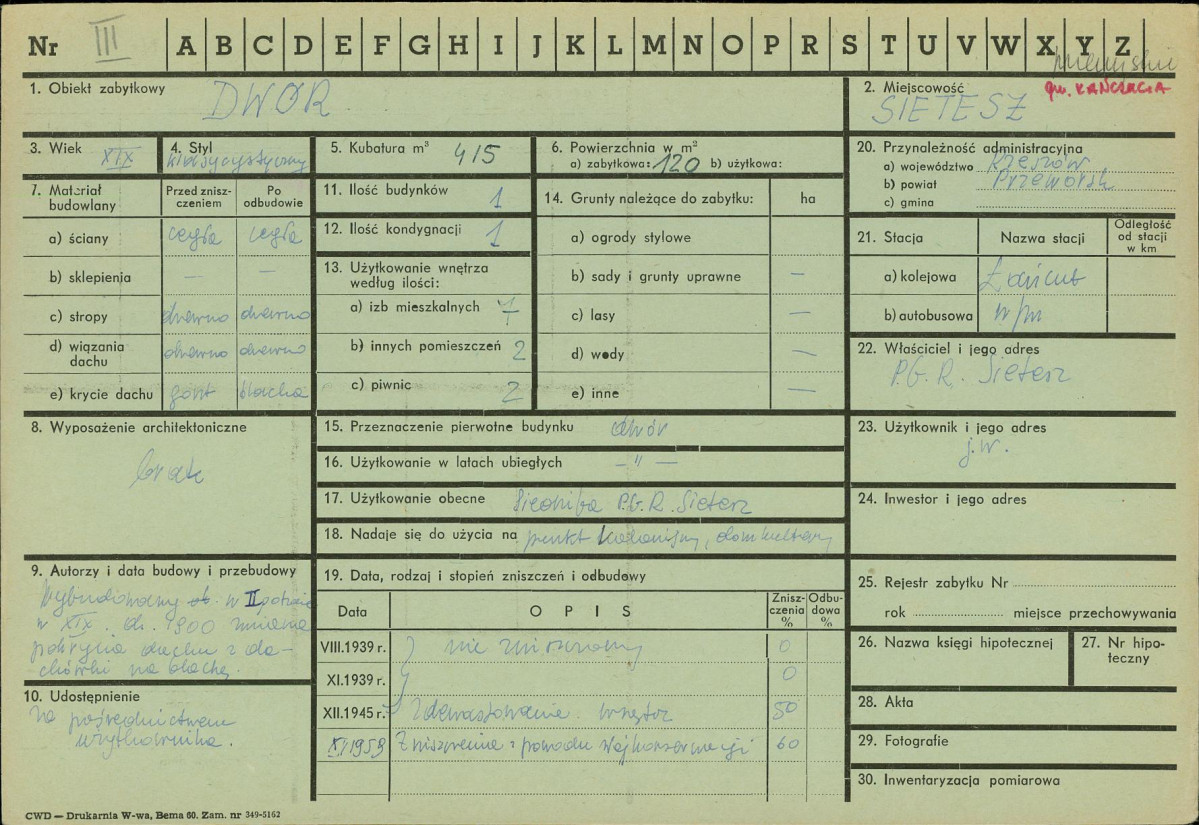 Nr III A B C D E F G H I J K L M N O P R S T U V W X Y Z
1. Obiekt zabytkowy DWÓR
2. Miejscowość gm. KAŃCZUGA
SIETESZ
3. Wiek XIX
4. Styl klasycystyczny
5. Kubatura m³ 415
6. Powierzchnia w m²
a) zabytkowa: 120 b) użytkowa:
20. Przynależność administracyjna
a) województwo Rzeszów
b) powiat Przeworsk
c) gmina
7. Materiał budowlany
Przed zniszczeniem
Po odbudowie
a) ściany cegła cegła
b) sklepienia — —
c) stropy drewno drewno
d) wiązania dachu drewno drewno
e) krycie dachu gont blacha
11. Ilość budynków 1
12. Ilość kondygnacji 1
13. Użytkowanie wnętrza
według ilości:
a) izb mieszkalnych 7
b) innych pomieszczeń 2
c) piwnic 2
14. Grunty należące do zabytku: ha
a) ogrody stylowe
b) sady i grunty uprawne —
c) lasy —
d) wody —
e) inne —
21. Stacja Nazwa stacji Odległość od stacji w km
a) kolejowa Łańcut
b) autobusowa w/m
22. Właściciel i jego adres
P.G.R. Sietesz
8. Wyposażenie architektoniczne
brak
15. Przeznaczenie pierwotne budynku dwór
16. Użytkowanie w latach ubiegłych — " —
17. Użytkowanie obecne Siedziba P.G.R. Sietesz
18. Nadaje się do użycia na punkt kolonijny, dom kultury
23. Użytkownik i jego adres
j.w.
24. Inwestor i jego adres
9. Autorzy i data budowy i przebudowy
Wybudowany ok. w II połowie
w XIX. ok. 1900 zmiana
pokrycia dachu z da-
chówki na blachę.
10. Udostępnienie
Za pośrednictwem
użytkownika.
19. Data, rodzaj i stopień zniszczeń i odbudowy
Data OPIS Zniszczenia % Odbudowa %
VIII.1939 r. nie zniszczony 0
XI.1939 r. 0
XII.1945 r. Zdewastowanie wnętrz 50
XI 1959 Zniszczenia z powodu złej konserwacji 60
25. Rejestr zabytku Nr
rok miejsce przechowywania
26. Nazwa księgi hipotecznej
27. Nr hipoteczny
28. Akta
29. Fotografie
30. Inwentaryzacja pomiarowa
CWD — Drukarnia W-wa, Bema 60. Zam. nr 349-5162